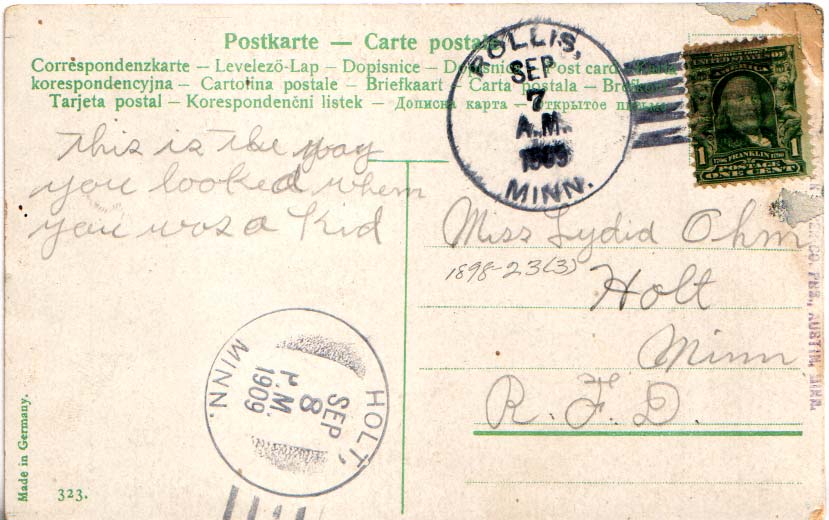 Postkarte — Carte postale
Correspondenzkarte – Levelező-Lap – Dopisnice – Dopisnica – Post card –
korespondencyjna – Cartolina postale – Briefkaart – Carta postala – Brefkort
Tarjeta postal – Korespondenční listek – Дописна карта – Открытое письмо
ROLLIS,
SEP
7
A.M.
1909
MINN.
UNITED STATES OF
AMERICA
1 1706 FRANKLIN 1790 1
POSTAGE
ONE CENT
This is the way
you looked when
you was a kid
Miss Lydia Ohm
1898-23(3)
Holt
Minn
R. F. D.
HOLT,
SEP
8
P.M.
1909
MINN.
CO. PBS, AUSTIN, MINN.
Made in Germany.
323.